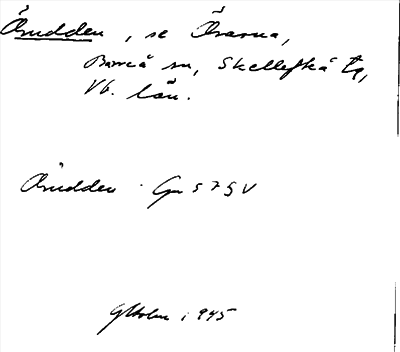 Örudden, se Örarna,
Bureå sn, Skellefteå tg,
Vb. län.
Örudden · Gen 57 § V
GHolm 1945